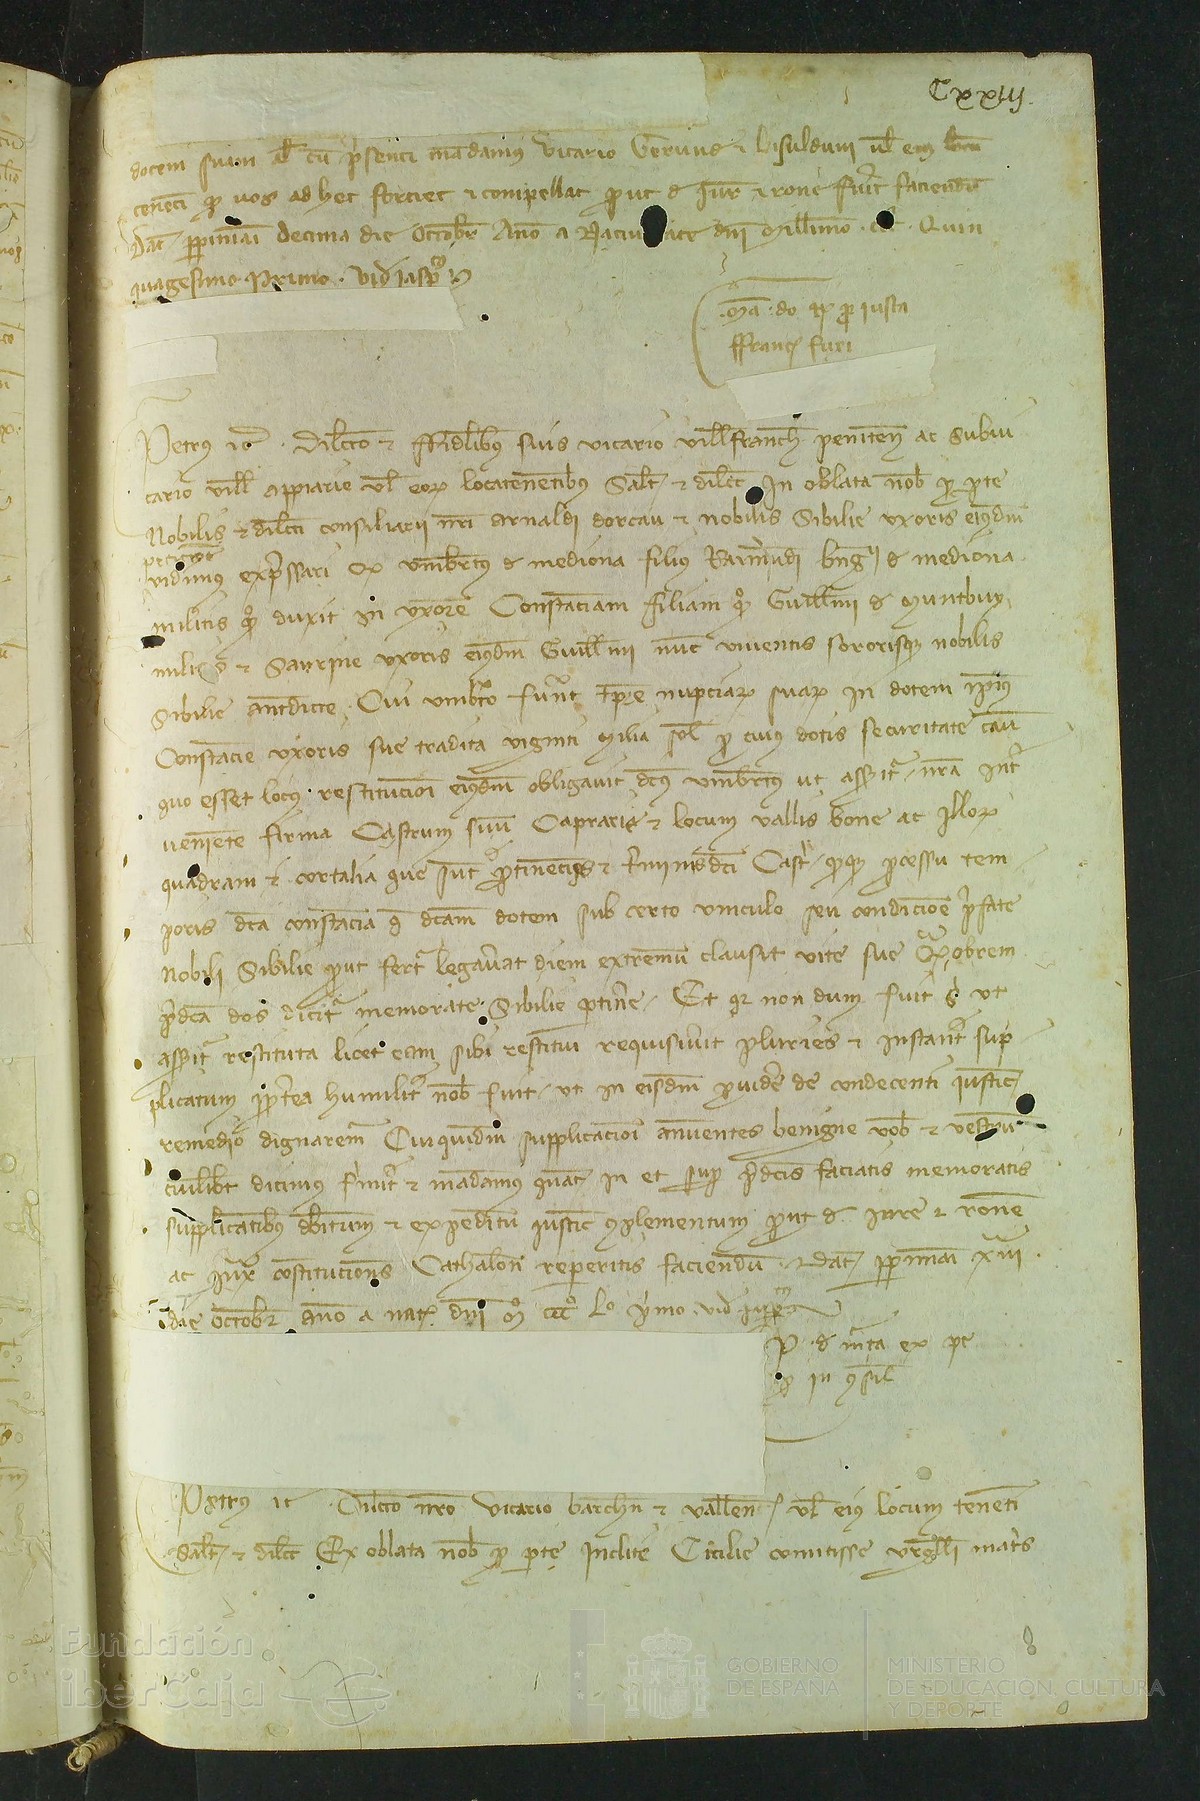 Cxxiij
dotem suam Et cu presenti mandamus vicario Gerunde & bisulduni vel eius
tenenti qd vos ad hec forciet & compellat prout de Jure & rone fuerit faciendum
Dat perpiniani decima die Octobr Anno a Nativitate dni Millimo CCC Quin
quagesimo Primo. vid
Ma do Rx pro iusta
ffranc fuxi
Petrus et. Dilecto & ffidelibus suis vicario villefranch peniten ac subvi
cario ville appiarie vel eorum locatenentibus Saltm & dilect In oblata nob pro parte
Nobilis & dilecti consiliarii nri arnaldi dorcau & nobilis Sibilie uxoris eiusdem
peticione
vidimus expressari qd umbertus de mediona filius Raimundi bng de mediona
militis qd duxit in uxorem Constanciam filiam qd Guillmi de Muntbuy
militis & Saurine uxoris eiusdem Guillmi nunc viventis sororisque nobilis
Sibilie antdicte. Cui umberto fuerunt tpre nupciarum suarum in dotem ipius
Constancie uxoris sue tradita viginti Milia sol pro cuius dotis securitate cau
quo esset locus restitucioni eiusdem obligavit dcus umbertus ut asseritur nra inter
veniente firma Castrum suum Capraria & locum vallis bone ac illorum
quadram & cortalia que sunt pertinencijs & terminis dci Castri qdque processu tem
poris dca constancia dcam dotem sub certo vinculo seu condicione prefate
nobili Sibilie prout fertur legaverat diem extremum clausit vite sue Quaobrem
predca dos dicitur memorate Sibilie pertinere. Et quia non dum fuit ei ut
asseritur restituta licet eam sibi restitui requisiverit pluries & instanter sup
plicatum propterea humiliter nob fuit ut in eisdem providere de condecenti iusticie
remedio dignaremur Cui quidem supplicacioni annuentes benigne vob & vestrum
cuilibet dicimus firmiter & mandamus quatenus in et super predcis faciatis memoratis
supplicantibus debitum & expeditum iusticie complementum prout de iure & ronem
ac iuxta constituciones Cathalonie reperitis faciendum. Dat perpiniani xiiii
die Octobr anno a nat dni Mo CCCo Lo primo. vid
P de ex pe
pro in consil
Petrus et Dilecto nro vicario barchn & vallen vel eius locum tenenti
Saltm & dilect Ex oblata nob pro parte Inclite Cicilie comitisse urgelli matris
Fundación
iberCaja
GOBIERNO
DE ESPAÑA
MINISTERIO
DE EDUCACIÓN, CULTURA
Y DEPORTE